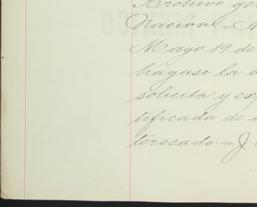 Archivo ge
Nacion.
Mayo 19 de
hágase la b
solicita y ex
tificada de
teresado.- J.